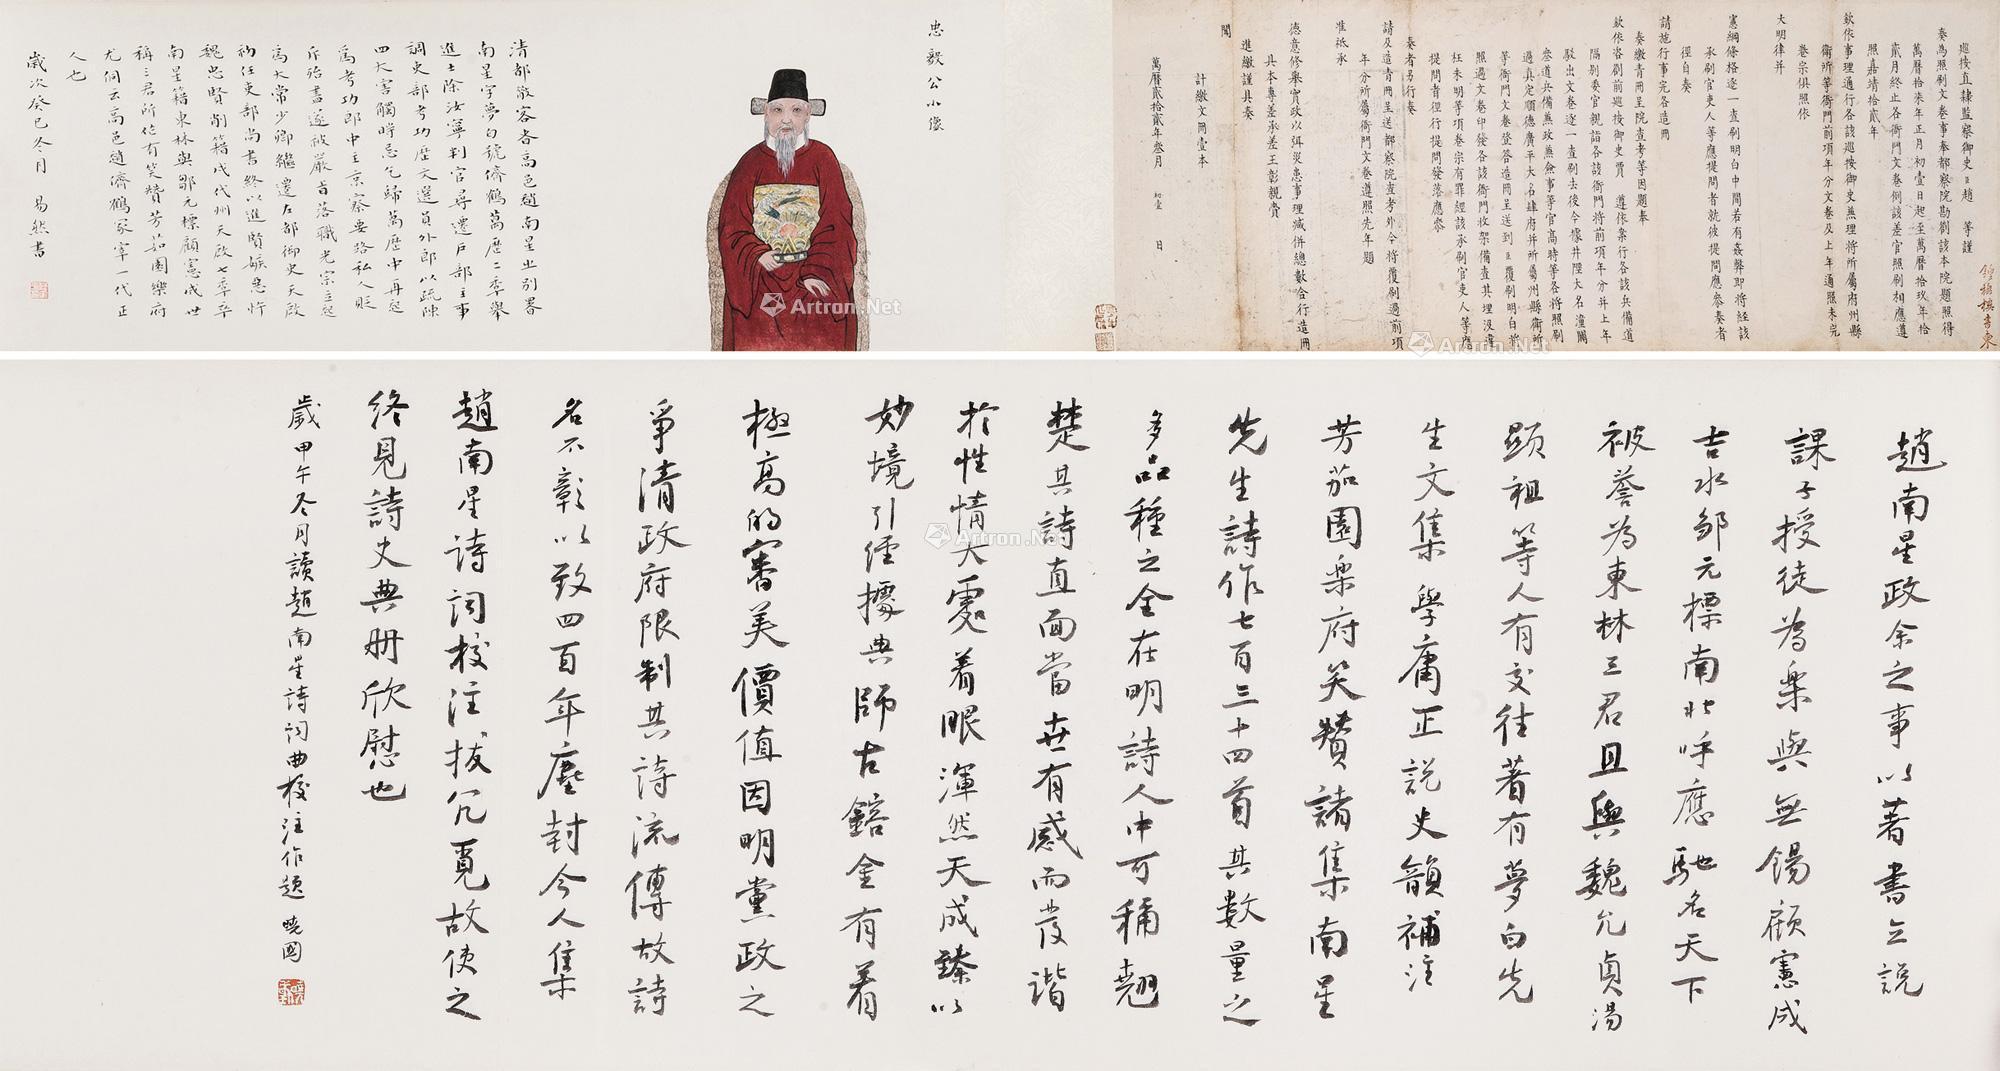 巡按直隸監察御史臣趙 等謹
奏為照刷文卷事奉都察院勘劄該本院題照得
萬曆拾柒年正月初壹日起至萬曆拾玖年拾
貳月終止各衙門文卷例該差官照刷相應遵
照嘉靖拾貳年
欽依事理通行各該巡按御史無理將所屬府州縣
衛所等衙門前項年分文卷及上年通照未完
卷宗俱照依
大明律并
憲綱條格逐一查刷明白中間若有姦弊即將經該
承刷官吏人等應提問者就彼提問應參奏者
徑自奏
請施行事完各造冊
奏繳青冊呈院查考等因題奉
欽依咨劄前巡按御史賈 遵依案行各該兵備道
隔別委官親詣各該衙門將前項年分并上年
駁出文卷逐一查刷去後今據井陘大名潼關
叁道兵備無政無僉事等官高時等各將照刷
過真定順德廣平大名肆府并所屬州縣衛所
等衙門文卷登答造冊呈送到臣覆刷明白將
照過文卷印發各該衙門收架備查其埋沒違
枉未明等項卷宗有罪經該承刷官吏人等應
提問者徑行提問發落應參
奏者另行奏
請及造青冊呈送都察院查考外今將覆刷過前項
年分所屬衙門文卷遵照先年題
准祗承
德意修舉實政以弭災患事理減併總數合行造冊
具本專差承差王彰親賫
進繳謹具奏
聞
計繳文冊壹本
萬曆貳拾貳年叁月 初壹 日
忠毅公小像
清都散客者高邑趙南星之別署
南星字夢白號儕鶴萬歷二年舉
進士除汝寧判官尋遷戶部主事
調吏部考功歷文選員外郎以疏陳
四大害觸時忌乞歸萬歷中再起
為考功郎中主京察要路私人貶
斥殆盡遂被嚴旨落職光宗立起
為太常少卿繼遷左都御史天啟
初任吏部尚書終以進賢嫉惡忤
魏忠賢削籍戍代州天啟七年卒
南星籍東林與鄒元標顧憲成世
稱三君所作有笑贊芳茹園樂府
尤侗云高邑趙儕鶴冢宰一代正
人也
歲次癸巳冬月 易然書
趙南星政余之事以著書立說
課子授徒為樂與無錫顧憲成
吉水鄒元標南北呼應馳名天下
被譽為東林三君且與魏允貞湯
顯祖等人有交往著有夢白先
生文集學庸正說史韻補注
芳茹園樂府笑贊諸集南星
先生詩作七百三十四首其數量之
多品種之全在明詩人中可稱翹
楚其詩直面當世有感而發諧
於性情大處着眼渾然天成臻以
妙境引經據典師古鎔金有着
極高的審美價值因明黨政之
爭清政府限制其詩流傳故詩
名不彰以致四百年塵封今人集
趙南星詩詞校注拔冗覓故使之
終見詩史典冊欣慰也
歲甲午冬月讀趙南星詩詞曲校注作題 曉國
Artron.Net
Artron.Net
Artron.Net